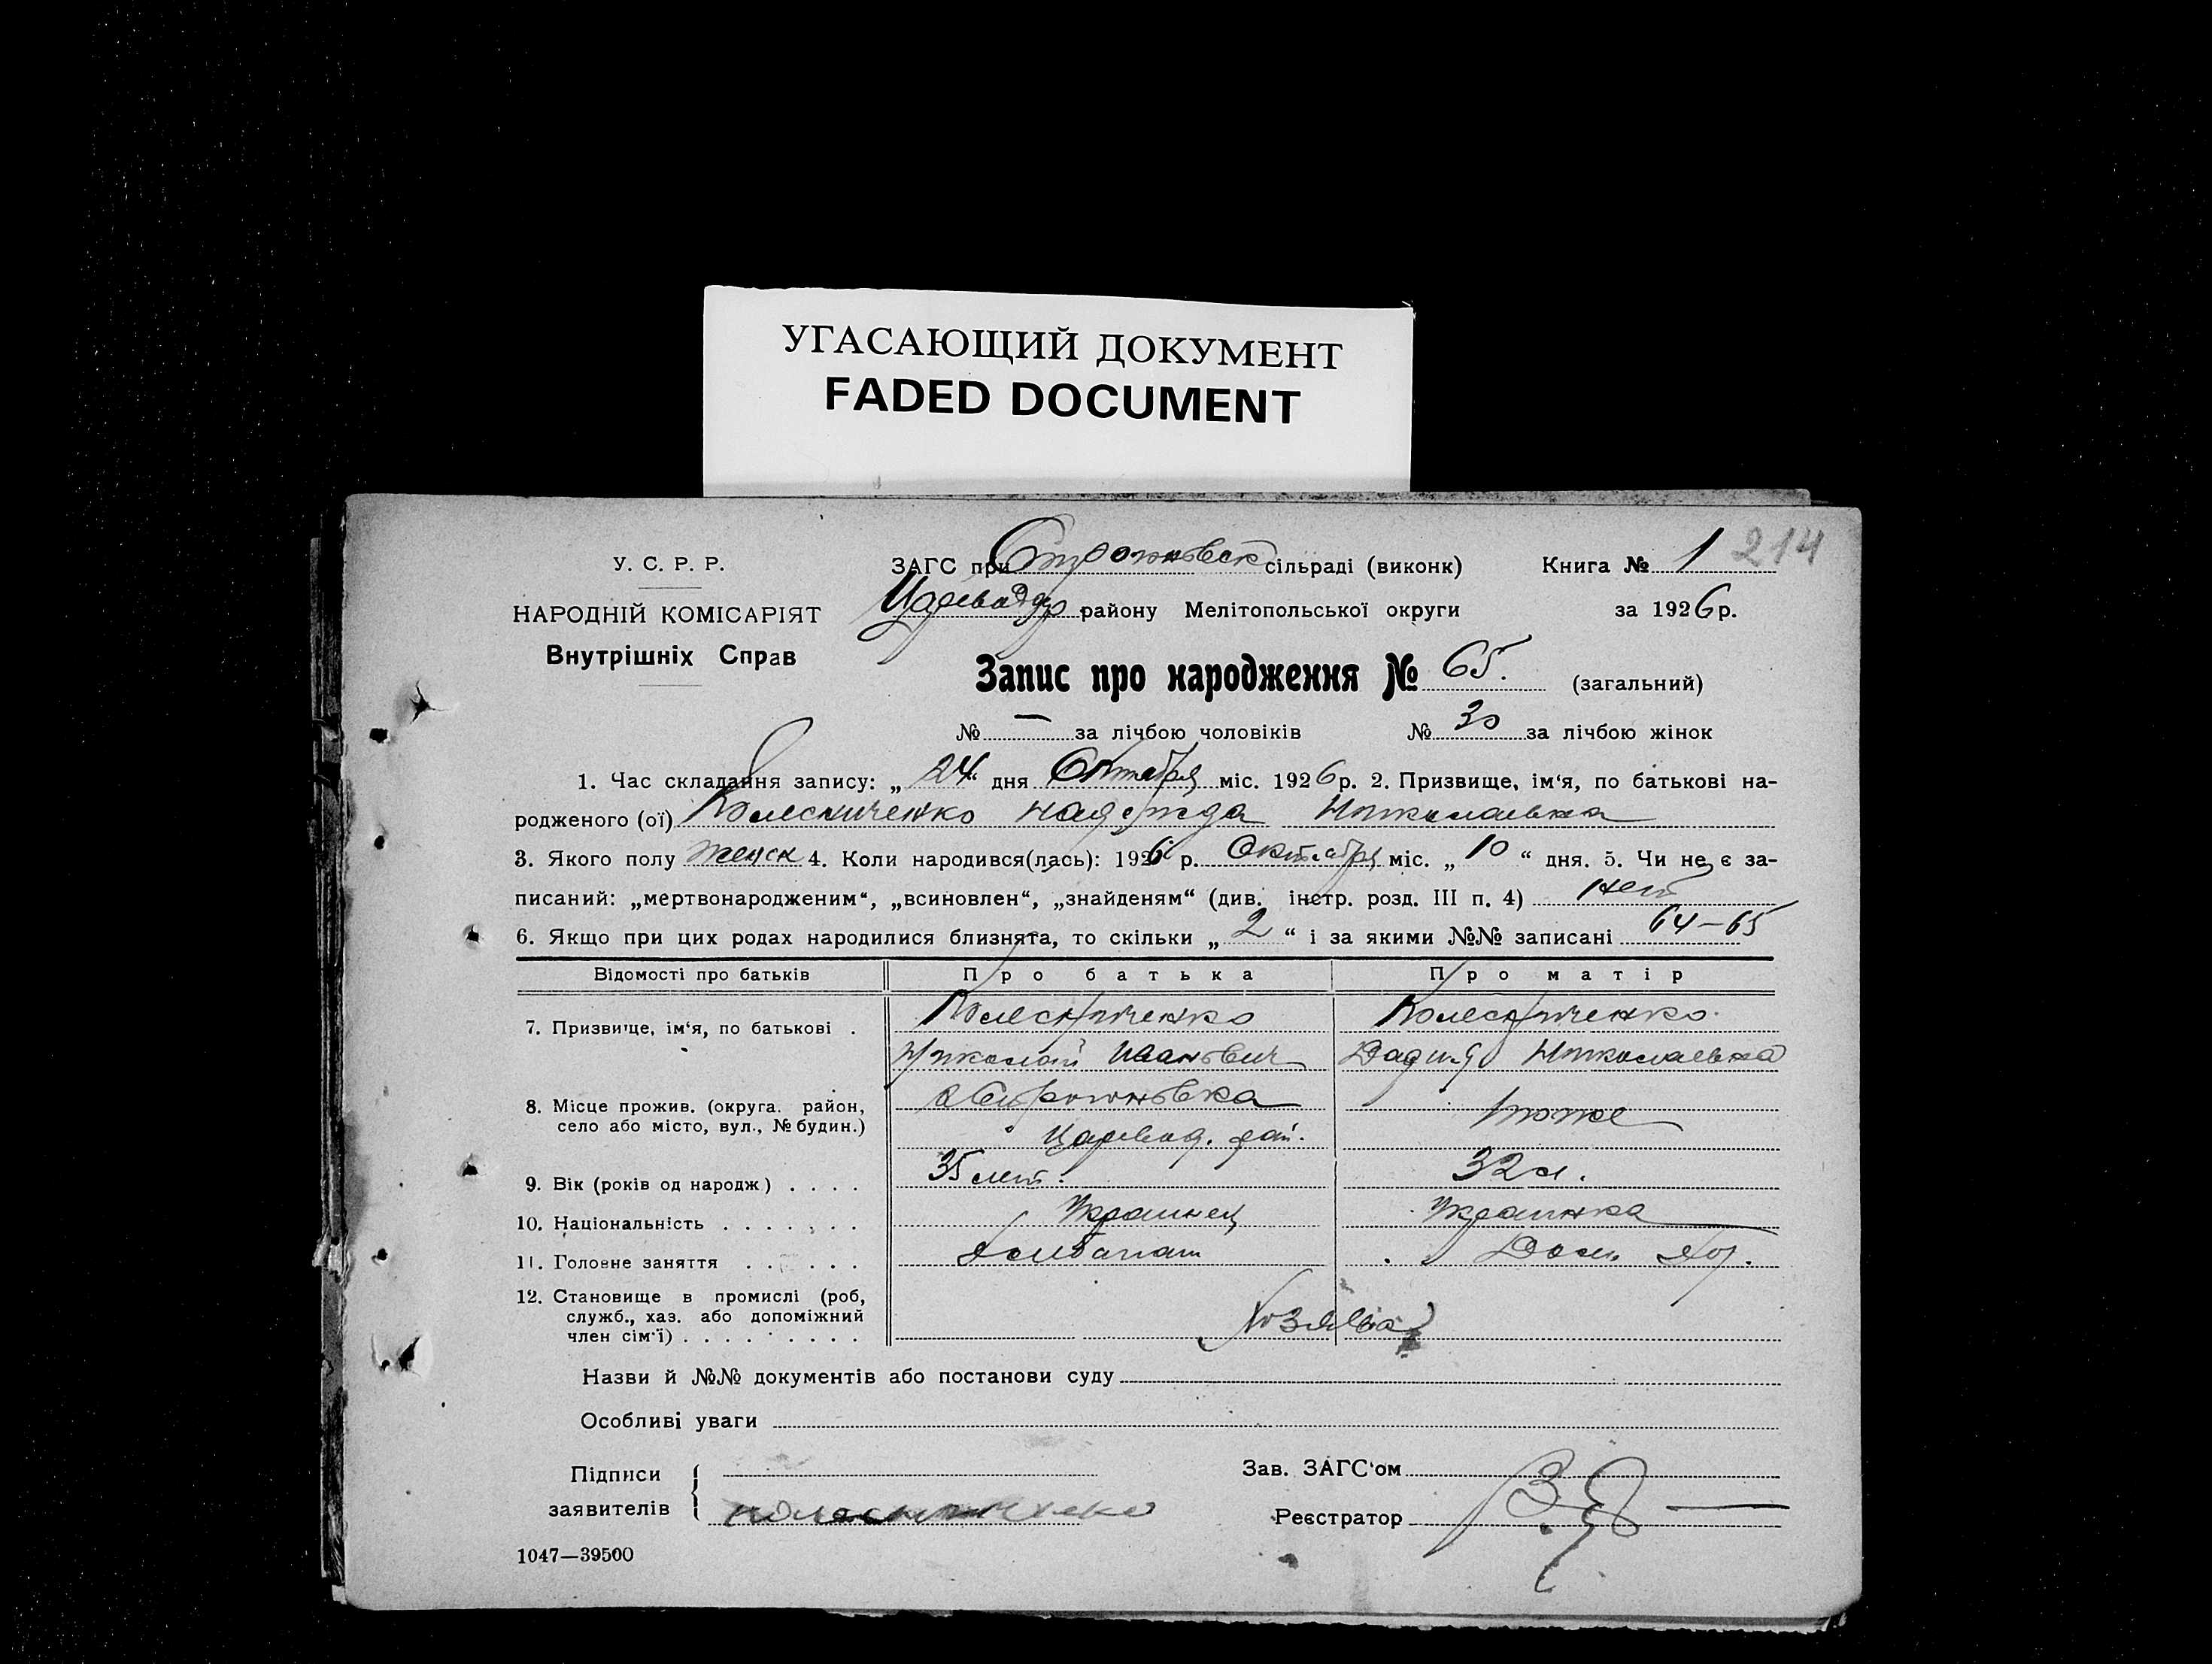 УГАСАЮЩИЙ ДОКУМЕНТ
FADED DOCUMENT
У. С. Р. Р.
НАРОДНІЙ КОМІСАРІЯТ
Внутрішніх Справ
ЗАГС при Строгоновск сільраді (виконк) Книга № 1 214
Царевод району Мелітопольської округи за 1926 р.
Запис про народження № 65. (загальний)
№ — за лічбою чоловіків № 30 за лічбою жінок
1. Час складання запису: „ 24 “ дня Октября міс. 1926 р. 2. Призвище, ім‘я, по батькові на-
родженого (ої) Колесниченко Надежда Николаевна
3. Якого полу женск 4. Коли народився(лась): 1926 р. Октября міс. „ 10 “ дня. 5. Чи не є за-
писаний: „мертвонародженим“, „всиновлен“, „знайденям“ (див. інстр. розд. III п. 4) нет
6. Якщо при цих родах народилися близнята, то скільки „ 2 “ і за якими №№ записані 64–65
Відомості про батьків Про батька Про матір
7. Призвище, ім‘я, по батькові . Колесниченко Колесниченко
Николай Иванович Николаевна
8. Місце прожив. (округа. район, село або місто, вул., № будин.) с Строгоновка тоже
Царевод. рай.
9. Вік (років од народж) . . . . 35 лет. 32 л.
10. Національність . . . . . . . Украинец Украинка
11. Головне заняття . . . . . . Хлебопаш Дом. хоз.
12. Становище в промислі (роб, служб., хаз. або допоміжний член сім‘ї) . . . . . . . . . Хозяева
Назви й №№ документів або постанови суду
Особливі уваги
Підписи
заявителів Колесниченко
Зав. ЗАГС‘ом
Реєстратор
1047—39500